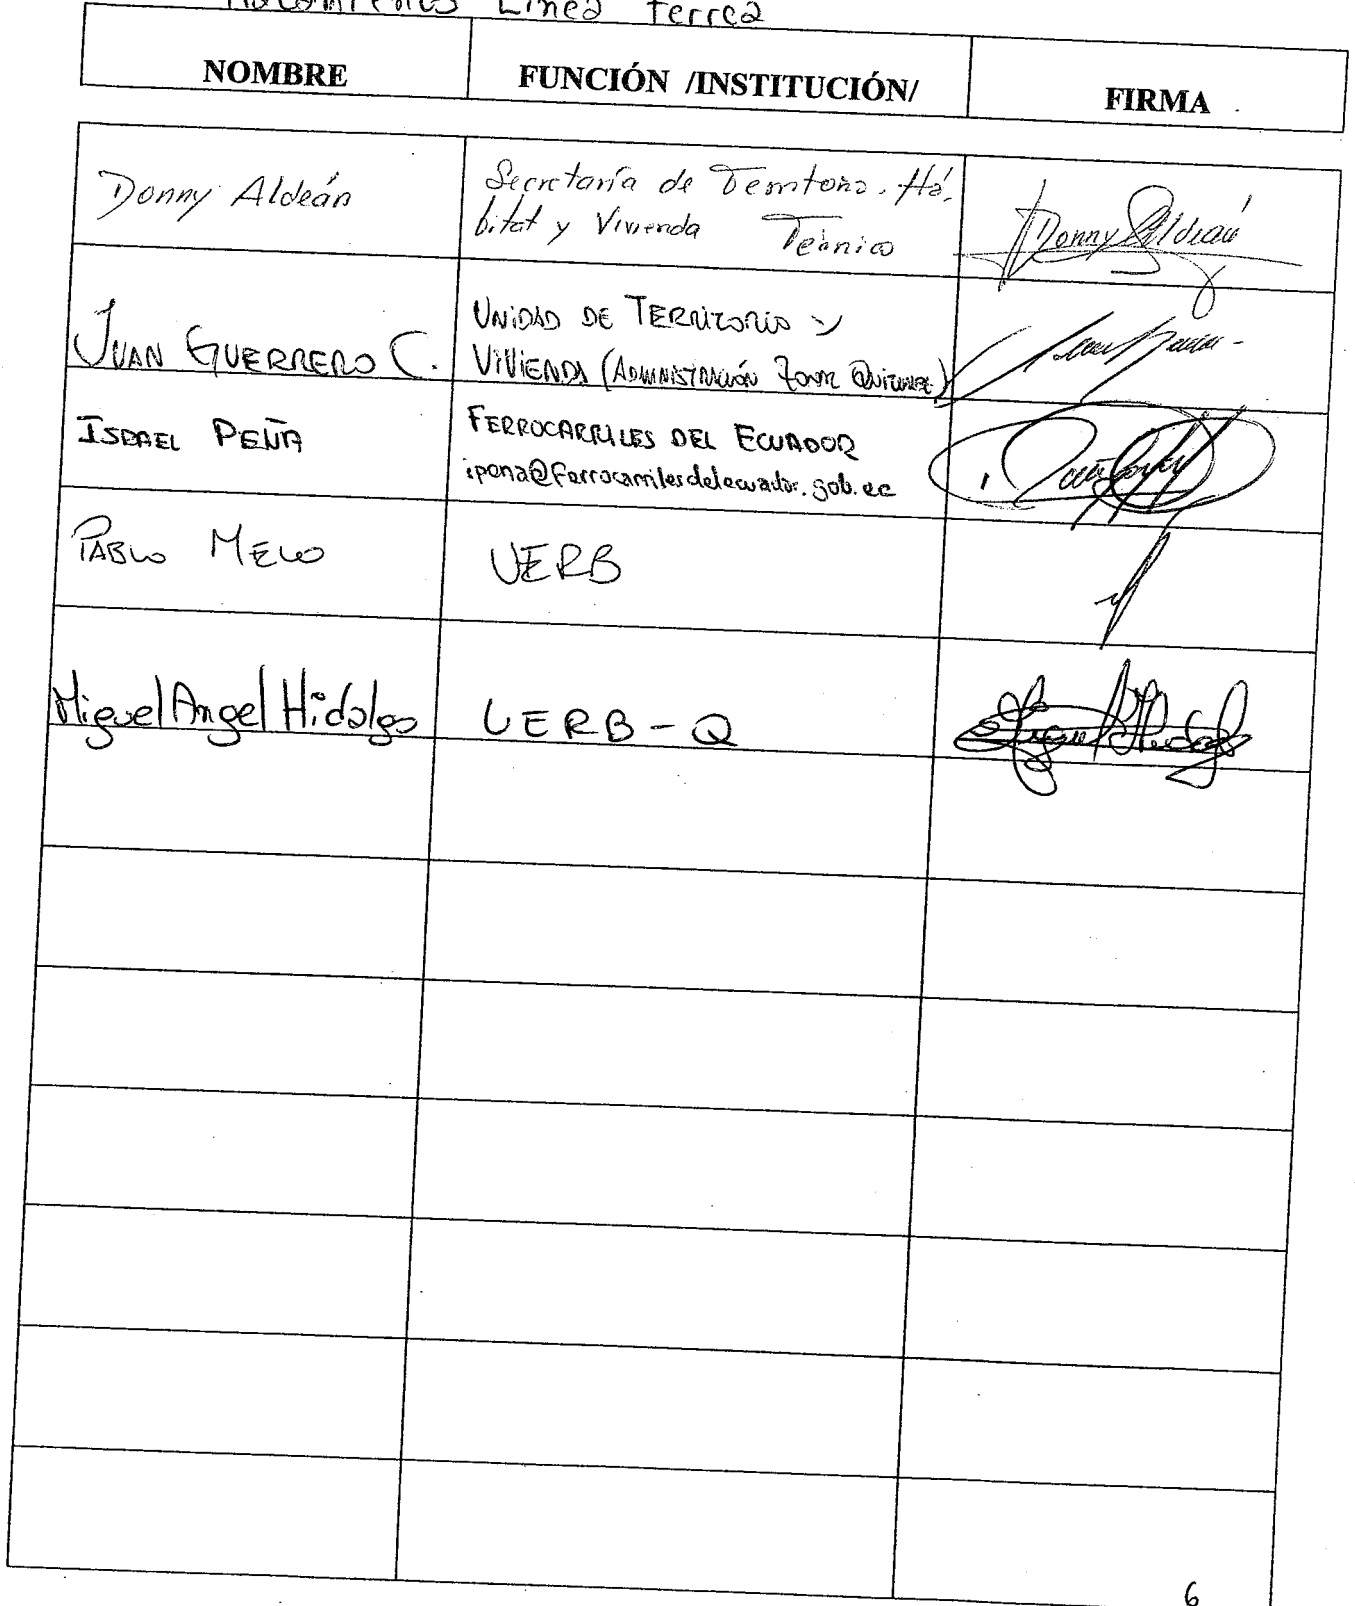 Línea Férrea
NOMBRE FUNCIÓN /INSTITUCIÓN/ FIRMA
Donny Aldeán
Secretaría de Territorio. Há-
bitat y Vivienda Técnico
Donny Aldeán
JUAN GUERRERO C.
UNIDAD DE TERRITORIO Y
VIVIENDA (ADMINISTRACIÓN ZONAL QUITUMBE)
ISRAEL PEÑA
FERROCARRILES DEL ECUADOR
ipena@ferrocarrilesdelecuador.gob.ec
PABLO MELO
UERB
Miguel Angel Hidalgo
UERB-Q
6